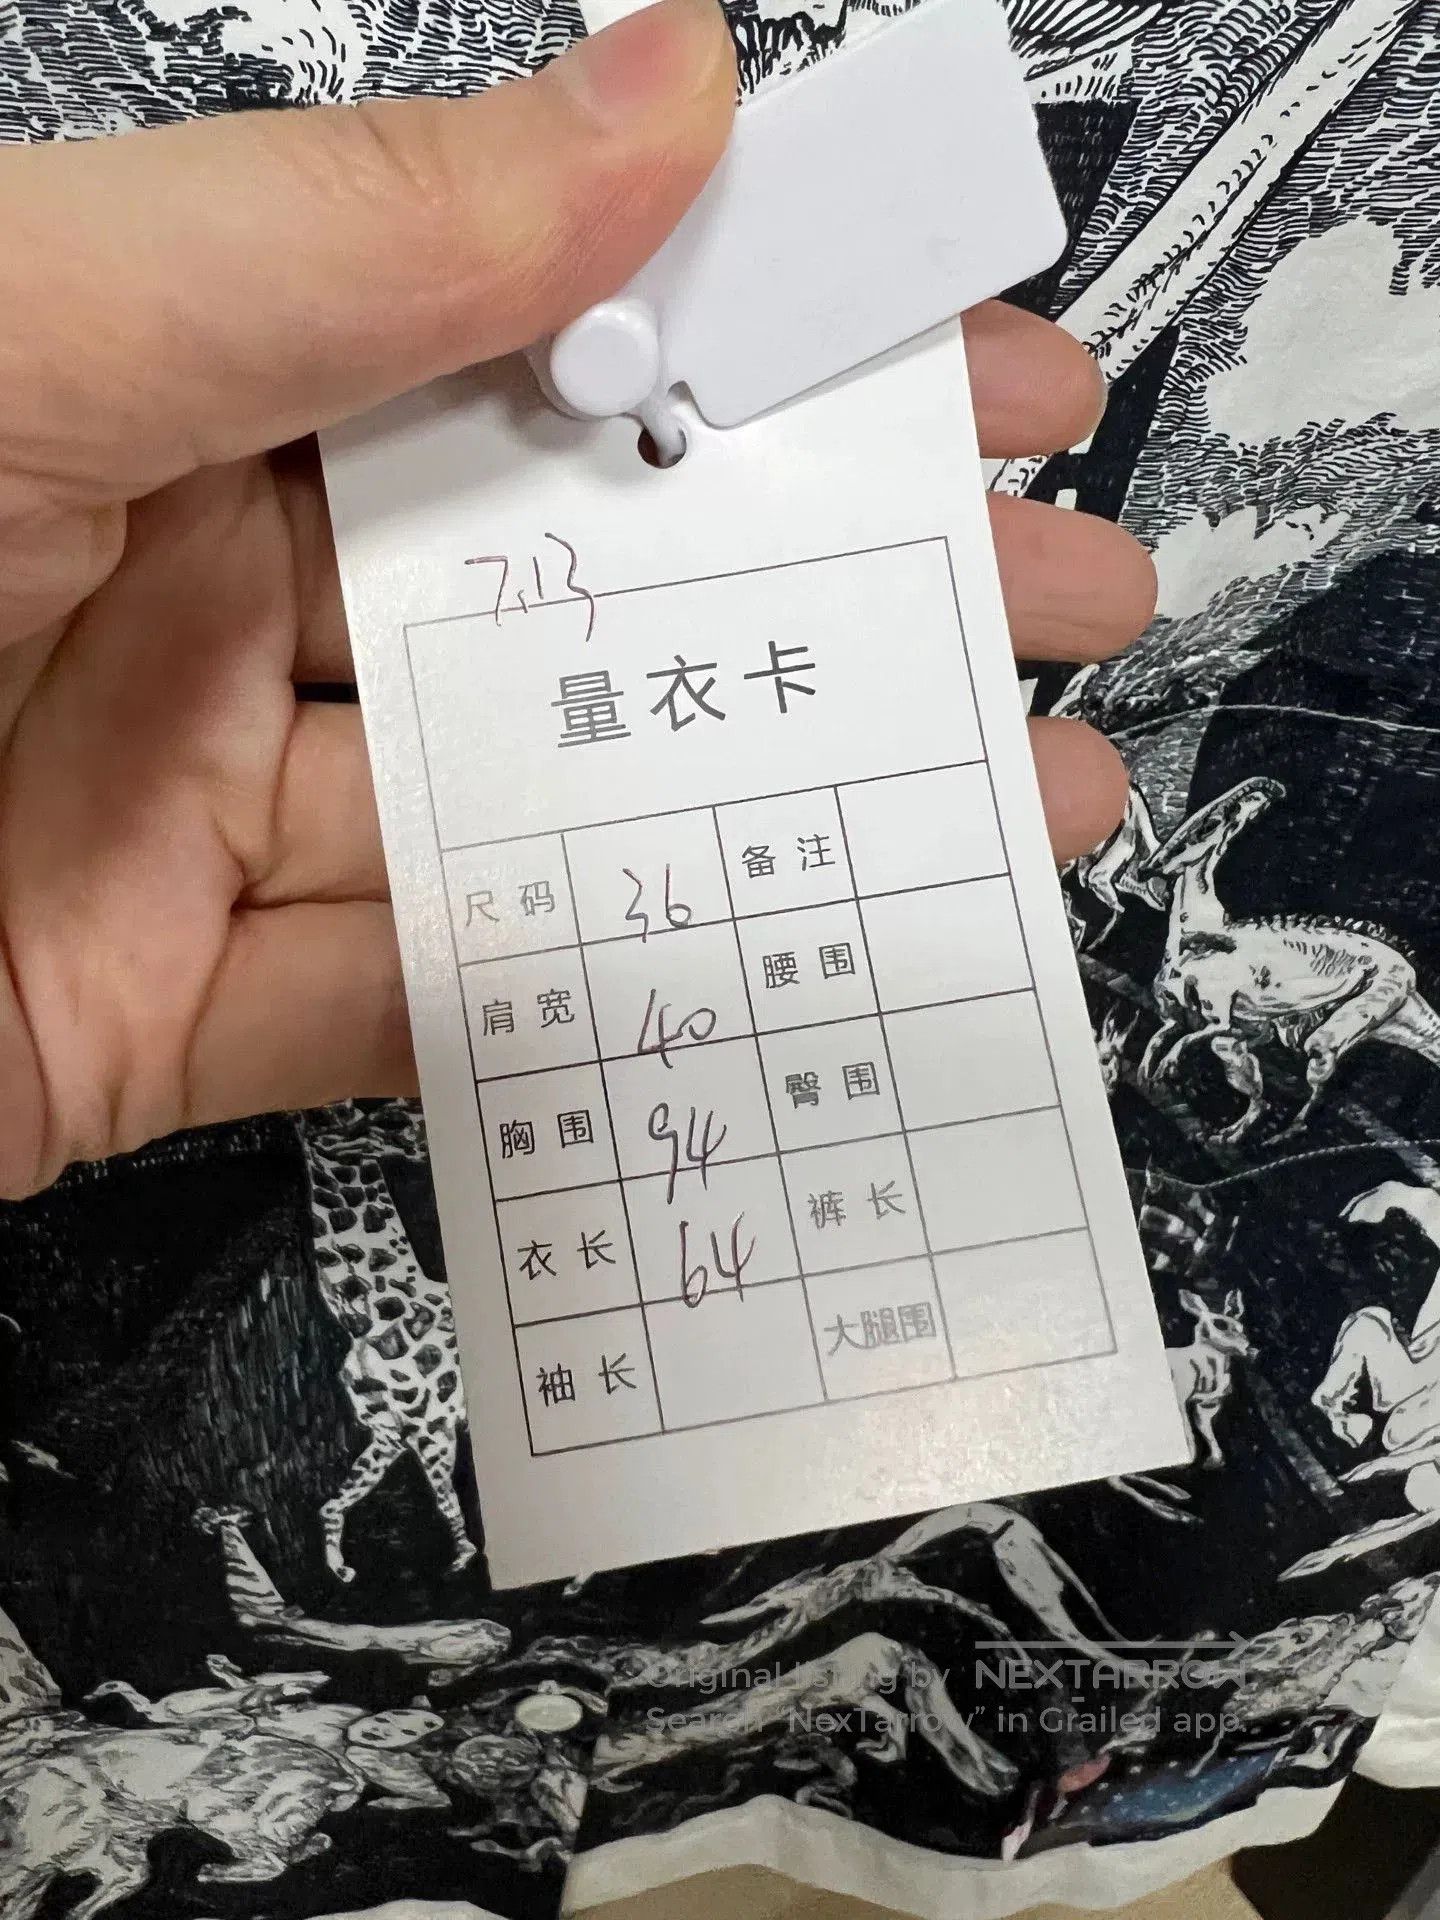 7.13
量衣卡
尺码 36 备注
肩宽 40 腰围
胸围 94 臀围
衣长 64 裤长
袖长 大腿围
Original listing by NEXTARROW
Search “NexTarrow” in Grailed app.